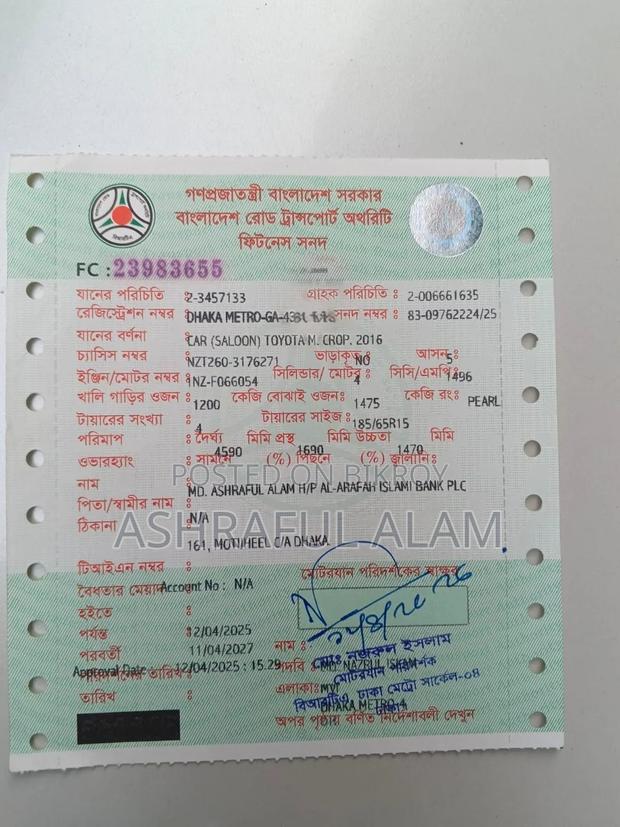 গণপ্রজাতন্ত্রী বাংলাদেশ সরকার
বাংলাদেশ রোড ট্রান্সপোর্ট অথরিটি
ফিটনেস সনদ
FC : 23983655
যানের পরিচিতি : 2-3457133 গ্রাহক পরিচিতি : 2-006661635
রেজিস্ট্রেশন নম্বর : DHAKA METRO-GA- সনদ নম্বর : 83-09762224/25
যানের বর্ণনা : CAR (SALOON) TOYOTA M. CROP. 2016
চ্যাসিস নম্বর : NZT260-3176271 ভাড়াকৃত : NO আসন : 5
ইঞ্জিন/মোটর নম্বর : 1NZ-F066054 সিলিন্ডার/ মোটর : 4 সিসি/এমপি : 1496
খালি গাড়ির ওজন : 1200 কেজি বোঝাই ওজন : 1475 কেজি রং : PEARL
টায়ারের সংখ্যা : 4 টায়ারের সাইজ : 185/65R15
পরিমাপ : দৈর্ঘ্য 4590 মিমি প্রস্থ 1690 মিমি উচ্চতা 1470 মিমি
ওভারহ্যাং : সামনে (%) পিছনে (%) জ্বালানি :
POSTED ON BIKROY
নাম : MD. ASHRAFUL ALAM H/P AL-ARAFAH ISLAMI BANK PLC
পিতা/স্বামীর নাম : N/A
ASHRAFUL ALAM
ঠিকানা : 161, MOTIJHEEL C/A DHAKA
টিআইএন নম্বর :
মোটরযান পরিদর্শকের স্বাক্ষর
বৈধতার মেয়াদ Account No : N/A
হইতে :
পর্যন্ত : 12/04/2025
পরবর্তী : 11/04/2027 নাম :
Approval Date : 12/04/2025 : 15.29 পদবি : MD. NAZRUL ISLAM
তারিখ : এলাকা : MVI
মোঃ নজরুল ইসলাম
মোটরযান পরিদর্শক
বিআরটিএ ঢাকা মেট্রো সার্কেল-০৪
DHAKA METRO-4
অপর পৃষ্ঠায় বর্ণিত নির্দেশাবলী দেখুন